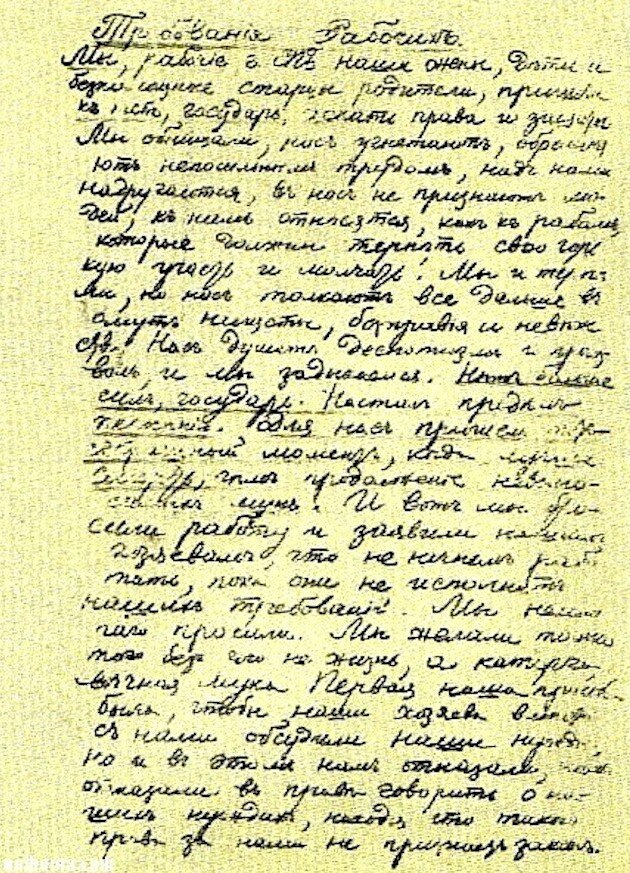 Требованія Рабочихъ.
Мы, рабочіе наши жены, дѣти и
старцы родители, пришли
къ государь, искати права и защиты
Мы обнищали, насъ угнетаютъ,
ютъ непосильнымъ трудомъ, надъ нами
надругаются, въ насъ не признаютъ лю-
дей, къ намъ относятся, какъ къ рабамъ,
которые должны терпѣть свою горь
кую участь и молчать! Мы и терпѣ
ли, но насъ толкаютъ все дальше въ
омутъ нищеты, безправія и невѣж
ств. Насъ душитъ деспотизмъ и произ
волъ, и мы задыхаемся. Нѣтъ больше
силъ, государь. Насталъ предѣлъ
терпѣнія. Для насъ пришелъ
моментъ, когда лучше
смерть, чѣмъ продолженіе невыно-
мукъ. И вотъ мы бро-
сили работу и заявили нашимъ
хозяевамъ, что не начнемъ рабо
тать, пока они не исполнятъ
нашихъ требованій. Мы
просили. Мы желали только
того безъ чего не жизнь, а каторга,
вѣчная мука Первая наша просьба
была, чтобы наши хозяева вмѣстѣ
съ нами обсудили наши нужды,
но и въ этомъ намъ отказали,
отказали въ правѣ говорить о на-
шихъ нуждахъ, находя, что такого
права за нами не признаетъ законъ.